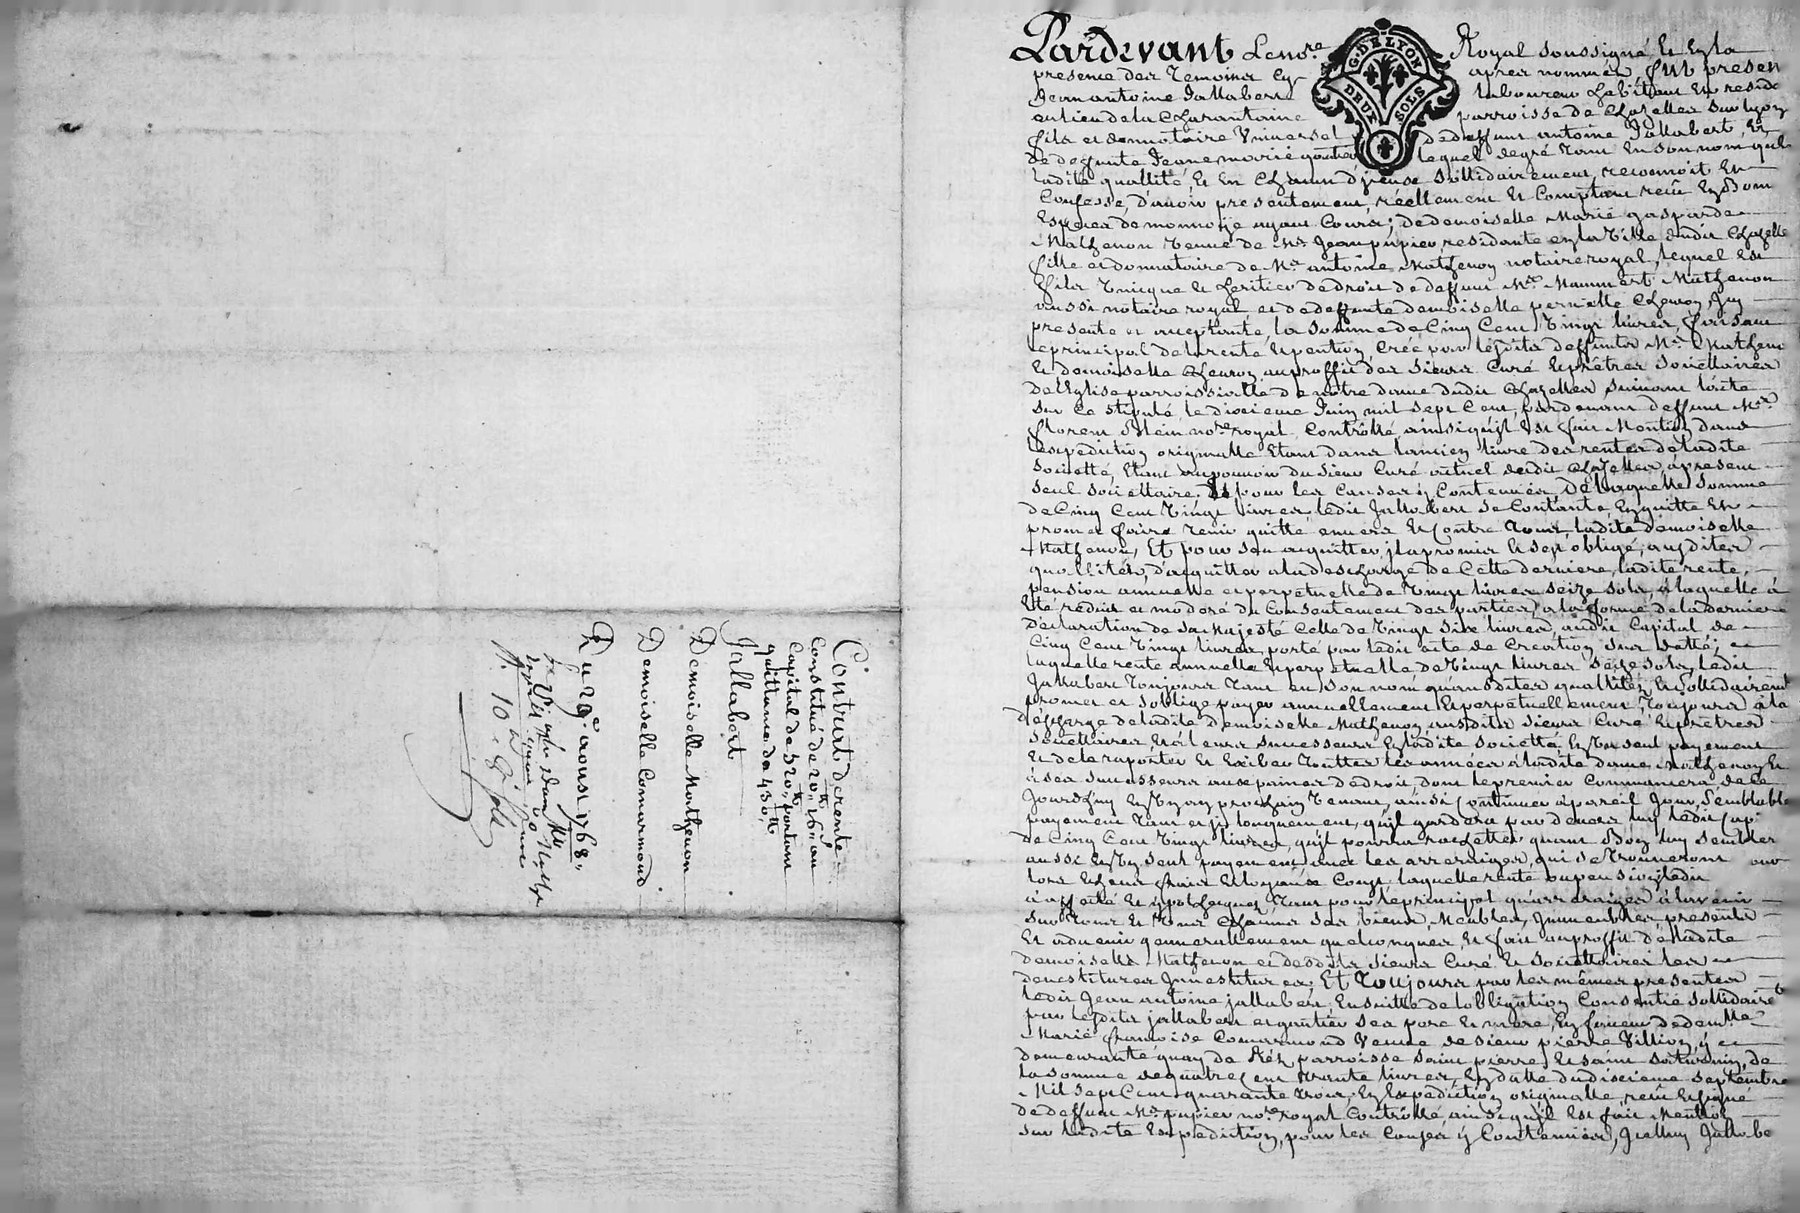 Pardevant Le no.re Royal soussigné et en la
presence des temoins cy après nommés fut presen
Jean antoine Jallabert laboureur habitant et reside
au lieu de la Charantaine parroisse de Chazelles sur lyon
fils et donnataire universel de deffunt antoine Jallabert, et
de deffunte Jeanne marie goutier lequel de gré tant en son nom qu'en
ladite quallité, et en chacun d'iceux sollidairement, reconnoit et
confesse, d'avoir presentement, réellement et comptant reçu en bon
especes de monnoye ayant cours; de demoiselle Marie gasparde
Mathevon veuve de Mr. Jean pupier, residante en la ville dudit Chazelle
fille et donnataire de Mr. antoine Mathevon notaire royal, lequel est
fils unique et heritier de droit de deffunt Mre. Mammert Mathevon
aussi notaire royal et de deffunte demoiselle pernette
presente et acceptante, la somme de Cinq Cent vingt livres, faisant
le principal de la rente et pention, créé par lesdits deffunts Mr. Mathevon
et demoiselle au proffit des sieurs Curé et prêtres societtaires
de l'Eglise parroissialle de nôtre dame dudit Chazelles, suivant l'acte
sur ce stipulé le dixieme Juin mil sept cent, pardevant deffunt Mr.
florent no.re royal, Controllé, ainsi qu'il est fait Mention dans
l'expedition originalle etant dans l'ancien livre des rentes de ladite
Societté, etant au pouvoir du sieur Curé actuel dudit Chazelles, àpresent
seul societtaire, et pour les causes y Contenües, De laquelle somme
de Cinq Cent vingt livres, ledit Jallabert se Contante, en quitte et
promet faire tenir quitte envers et contre tous, ladite demoiselle
Mathevon, Et pour son acquitter, il a promis et s'est obligé, ausdites
quallités, d'acquitter a la descharge de Cette derniere, ladite rente,
pension annuelle et perpetuelle de vingt livres seize sols, a laquelle à
été réduit et modéré du Consentement des parties, a la forme de la derniere
Déclaration de Sa Majesté Celle de vingt six livres, audit Capital de
Cinq Cent vingt livres, porté par ledit acte de Creation, sus datté; et
laquelle rente annuelle et perpetuelle de vingt livres seize sols, ledit
Jallabert toujours tant en son nom qu'ausdites quallités, et sollidairement
promet et s'oblige payer annuellement et perpetuellement, toujours à la
déscharge de ladite demoiselle Mathevon ausdits sieurs Curé et prêtres
societtaires et à leurs successeurs en ladite societté, en un seul payement
et de la raporter et exiber quitter les années a ladite dame Mathevon et
à ses successeurs aux peines de droit, dont le premier Commencera de ce
jourd'huy en un an prochain venant, ainsi continuer à pareil jour, semblable
payement tant et si longuement, qu'il gardera par devers luy ledit cap.
de Cinq Cent vingt livres, qu'il pourra rachetter quand bon luy semblera
aussi en un seul payement avec les arrerages, qui se trouveront
lors et sans frais et loyaux Couts laquelle rente ou pension ledit
a affecté et ypothequé, tant pour le principal qu'arrerages à l'avenir
sur tous et uns chacuns ses biens, Meubles, Immeubles presents
et advenir generallement quelconques, et fait au proffit de ladite
demoiselle Mathevon et desdits sieurs Curé et societtaires les
devestitures Investitures, Et Toujours par les mêmes presentes
ledit Jean antoine jallabert, Ensuitte de l'obligation Consentie sollidaire
par lesdits jallabert et goutier ses pere et mere, en faveur de dem.lle
Marie françoise Comarmond veuve de sieur pierre Villion, y
demeurante quay de Retz, parroisse saint pierre et saint saturnin, de
la somme de quatre cent trante livres, en datte du dixieme septembre
Mil sept cent quarante trois, en expedition originalle, reçüe et signé
de deffunt Mr. pupier no.re royal Controllé ainsi qu'il est fait Mention
sur ladite Expedition, pour les Causes y Contenües, Icelluy Jallabe
G. DE LYON
DEUX SOLS
Contrat de rente
Constitué de 20tt 16s au
Capital de 520tt portant
quittance de 430tt
Jallabert
Demoiselle Mathevon
Demoiselle Comarmond
Du 29e. aoust 1768.